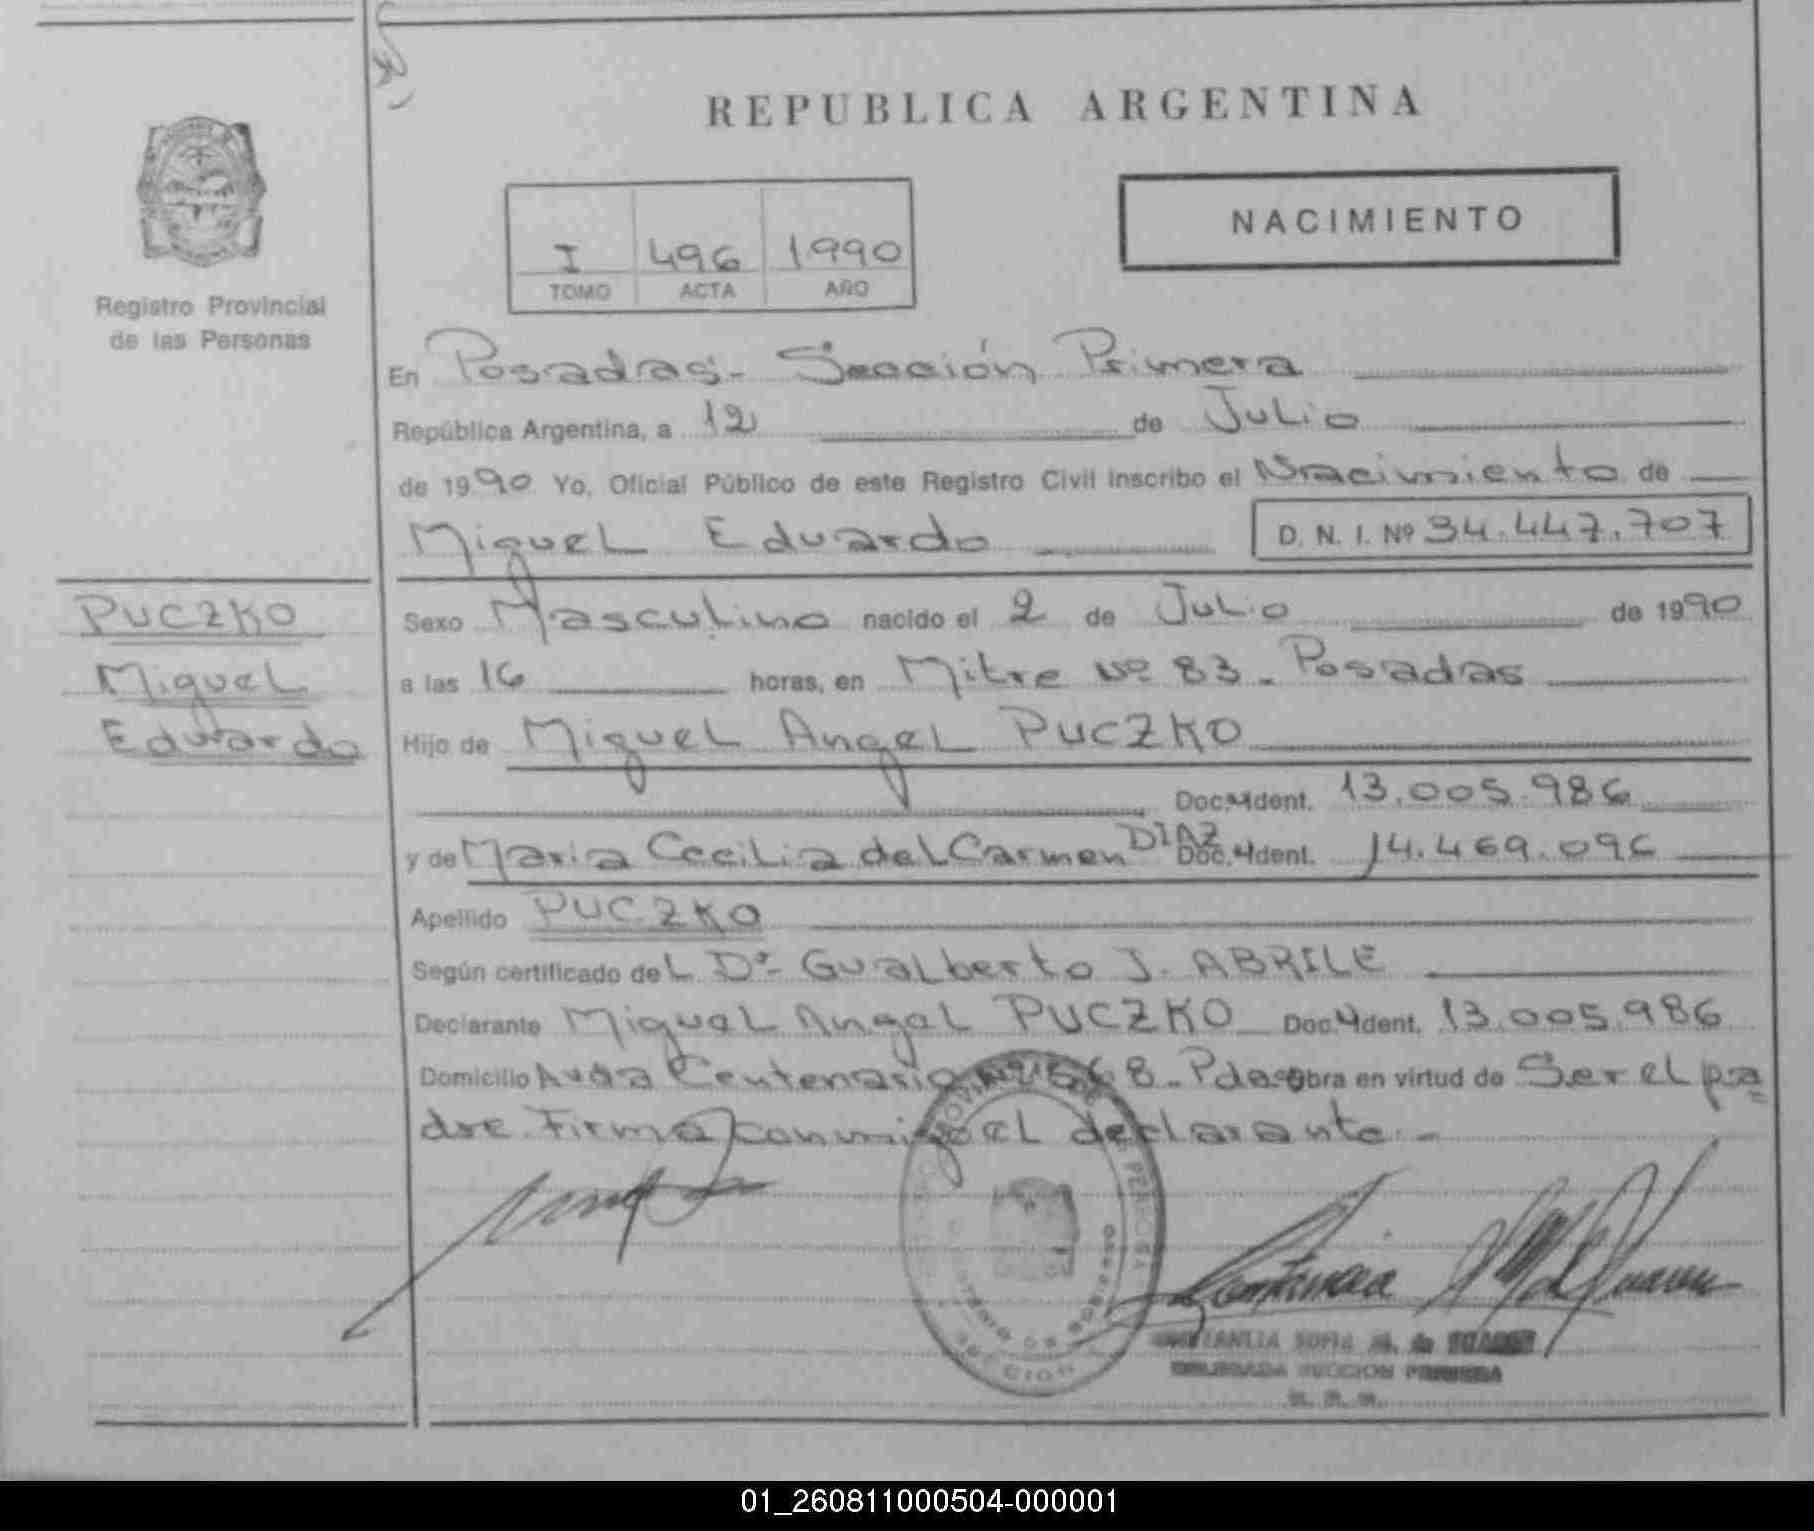 REPUBLICA ARGENTINA
NACIMIENTO
I 496 1990
TOMO ACTA AÑO
Registro Provincial
de las Personas
En Posadas - Sección Primera
República Argentina, a 12 de Julio
de 1990 Yo, Oficial Público de este Registro Civil inscribo el Nacimiento de
Miguel Eduardo D. N. I. Nº 34.447.707
PUCZKO
Miguel
Eduardo
Sexo Masculino nacido el 2 de Julio de 1990
a las 16 horas, en Mitre Nº 83 - Posadas
Hijo de Miguel Angel PUCZKO
Doc. Ident. 13.005.986
y de Maria Cecilia del Carmen DIAZ Doc. Ident. 14.469.096
Apellido PUCZKO
Según certificado del Dr. Gualberto J. ABRILE
Declarante Miguel Angel PUCZKO Doc. Ident. 13.005.986
Domicilio Avda Centenario Pdas obra en virtud de Ser el pa=
dre. Firma conmigo el declarante.-
SOFIA M. de
DELEGADA SECCION PRIMERA
01_260811000504-000001